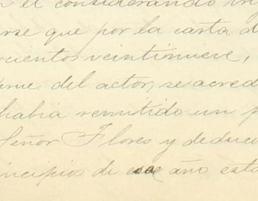 n el considerando in
rse que por la carta d
cuentos veintinueve,
me del actor, se acred
habia remitido un p
Señor Flores y deduc
incipios de ese año esta